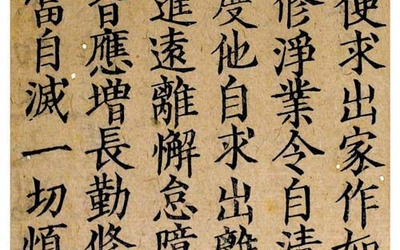 求出家作
修淨業令自清
度他自求出離
進遠離懈怠障
應增長勤修
當自滅一切煩